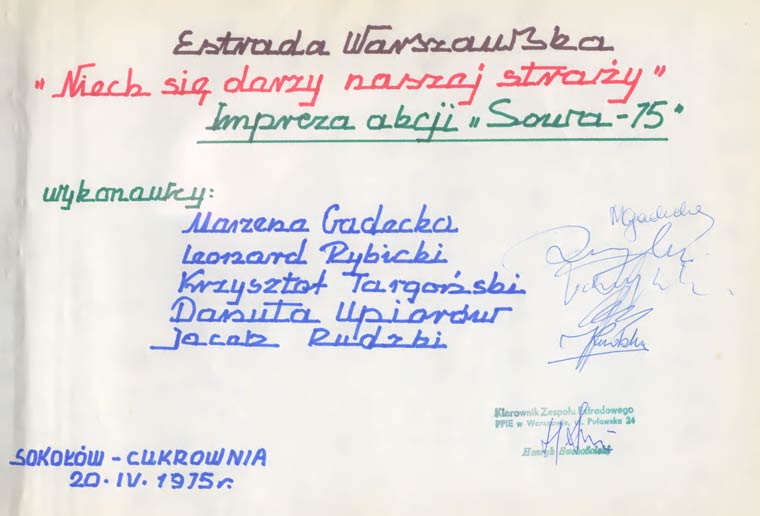 Estrada Warszawska
"Niech się darzy naszej straży"
Impreza akcji "Sowa-75"
wykonawcy:
Marzena Gadecka
Leonard Rybicki
Krzysztof Targoński
Danuta Upiorów
Jacek Rudzki
Kierownik Zespołu Estradowego
PPIE w Warszawie, ul. Puławska 24
Henryk
SOKOŁÓW - CUKROWNIA
20.IV.1975r.